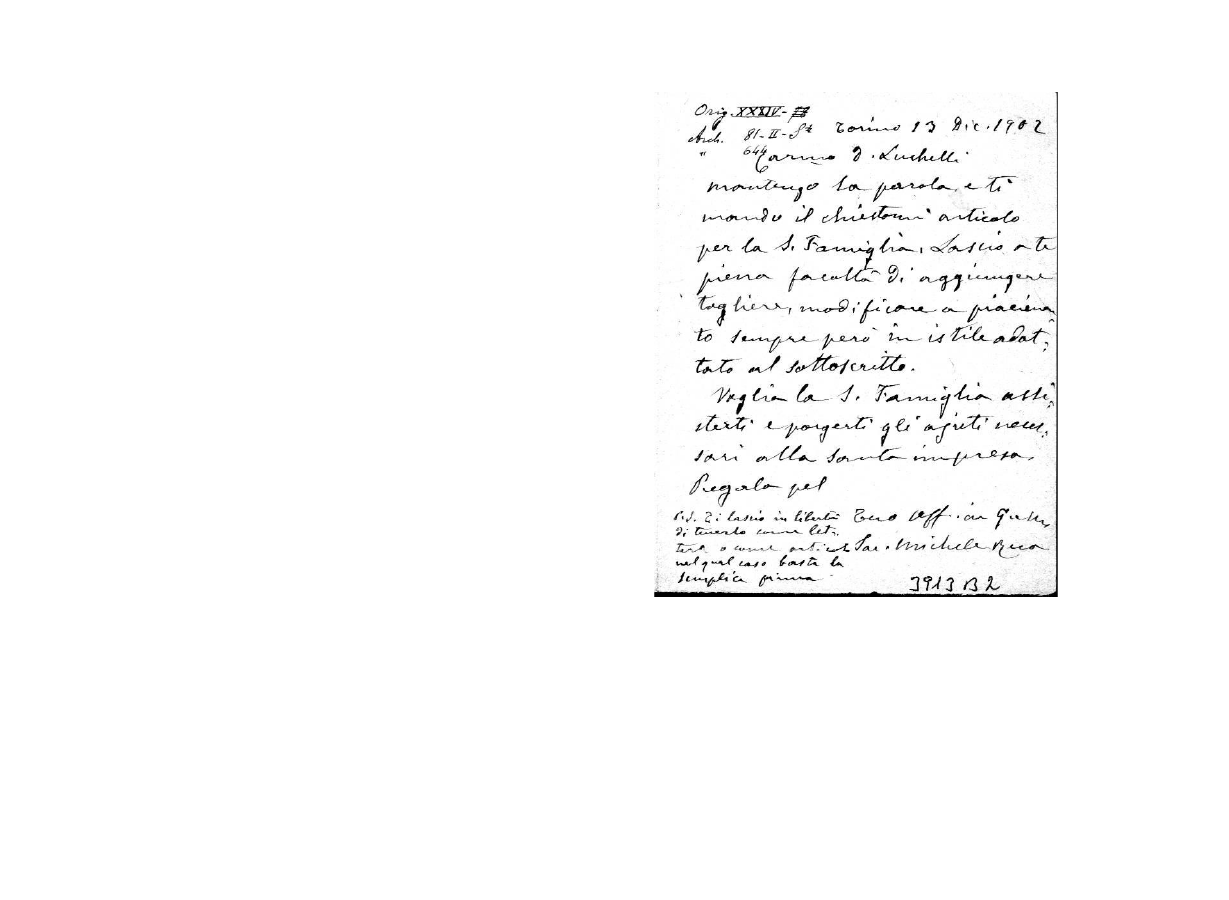 Orig. XXXIV-
Arch. 81-II-Sk Torino 13 Dic. 1902
" 644 Carmo D. Luchelli
mantengo la parola e ti
mando il chiestomi articolo
per la S. Famiglia. Lascio a te
piena facoltà di aggiungere
togliere, modificare a piacimen
to sempre però in istile adat,
tato al sottoscritto.
Voglia la S. Famiglia assi,
sterti e porgerti gli ajuti neces,
sari alla santa impresa.
Pregala pel
P.S. Ti lascio in libertà Tuo aff. in
di tenerlo come let,
tera o come Sac. Michele Rua
nel qual caso basta la
semplice firma
3913 B2